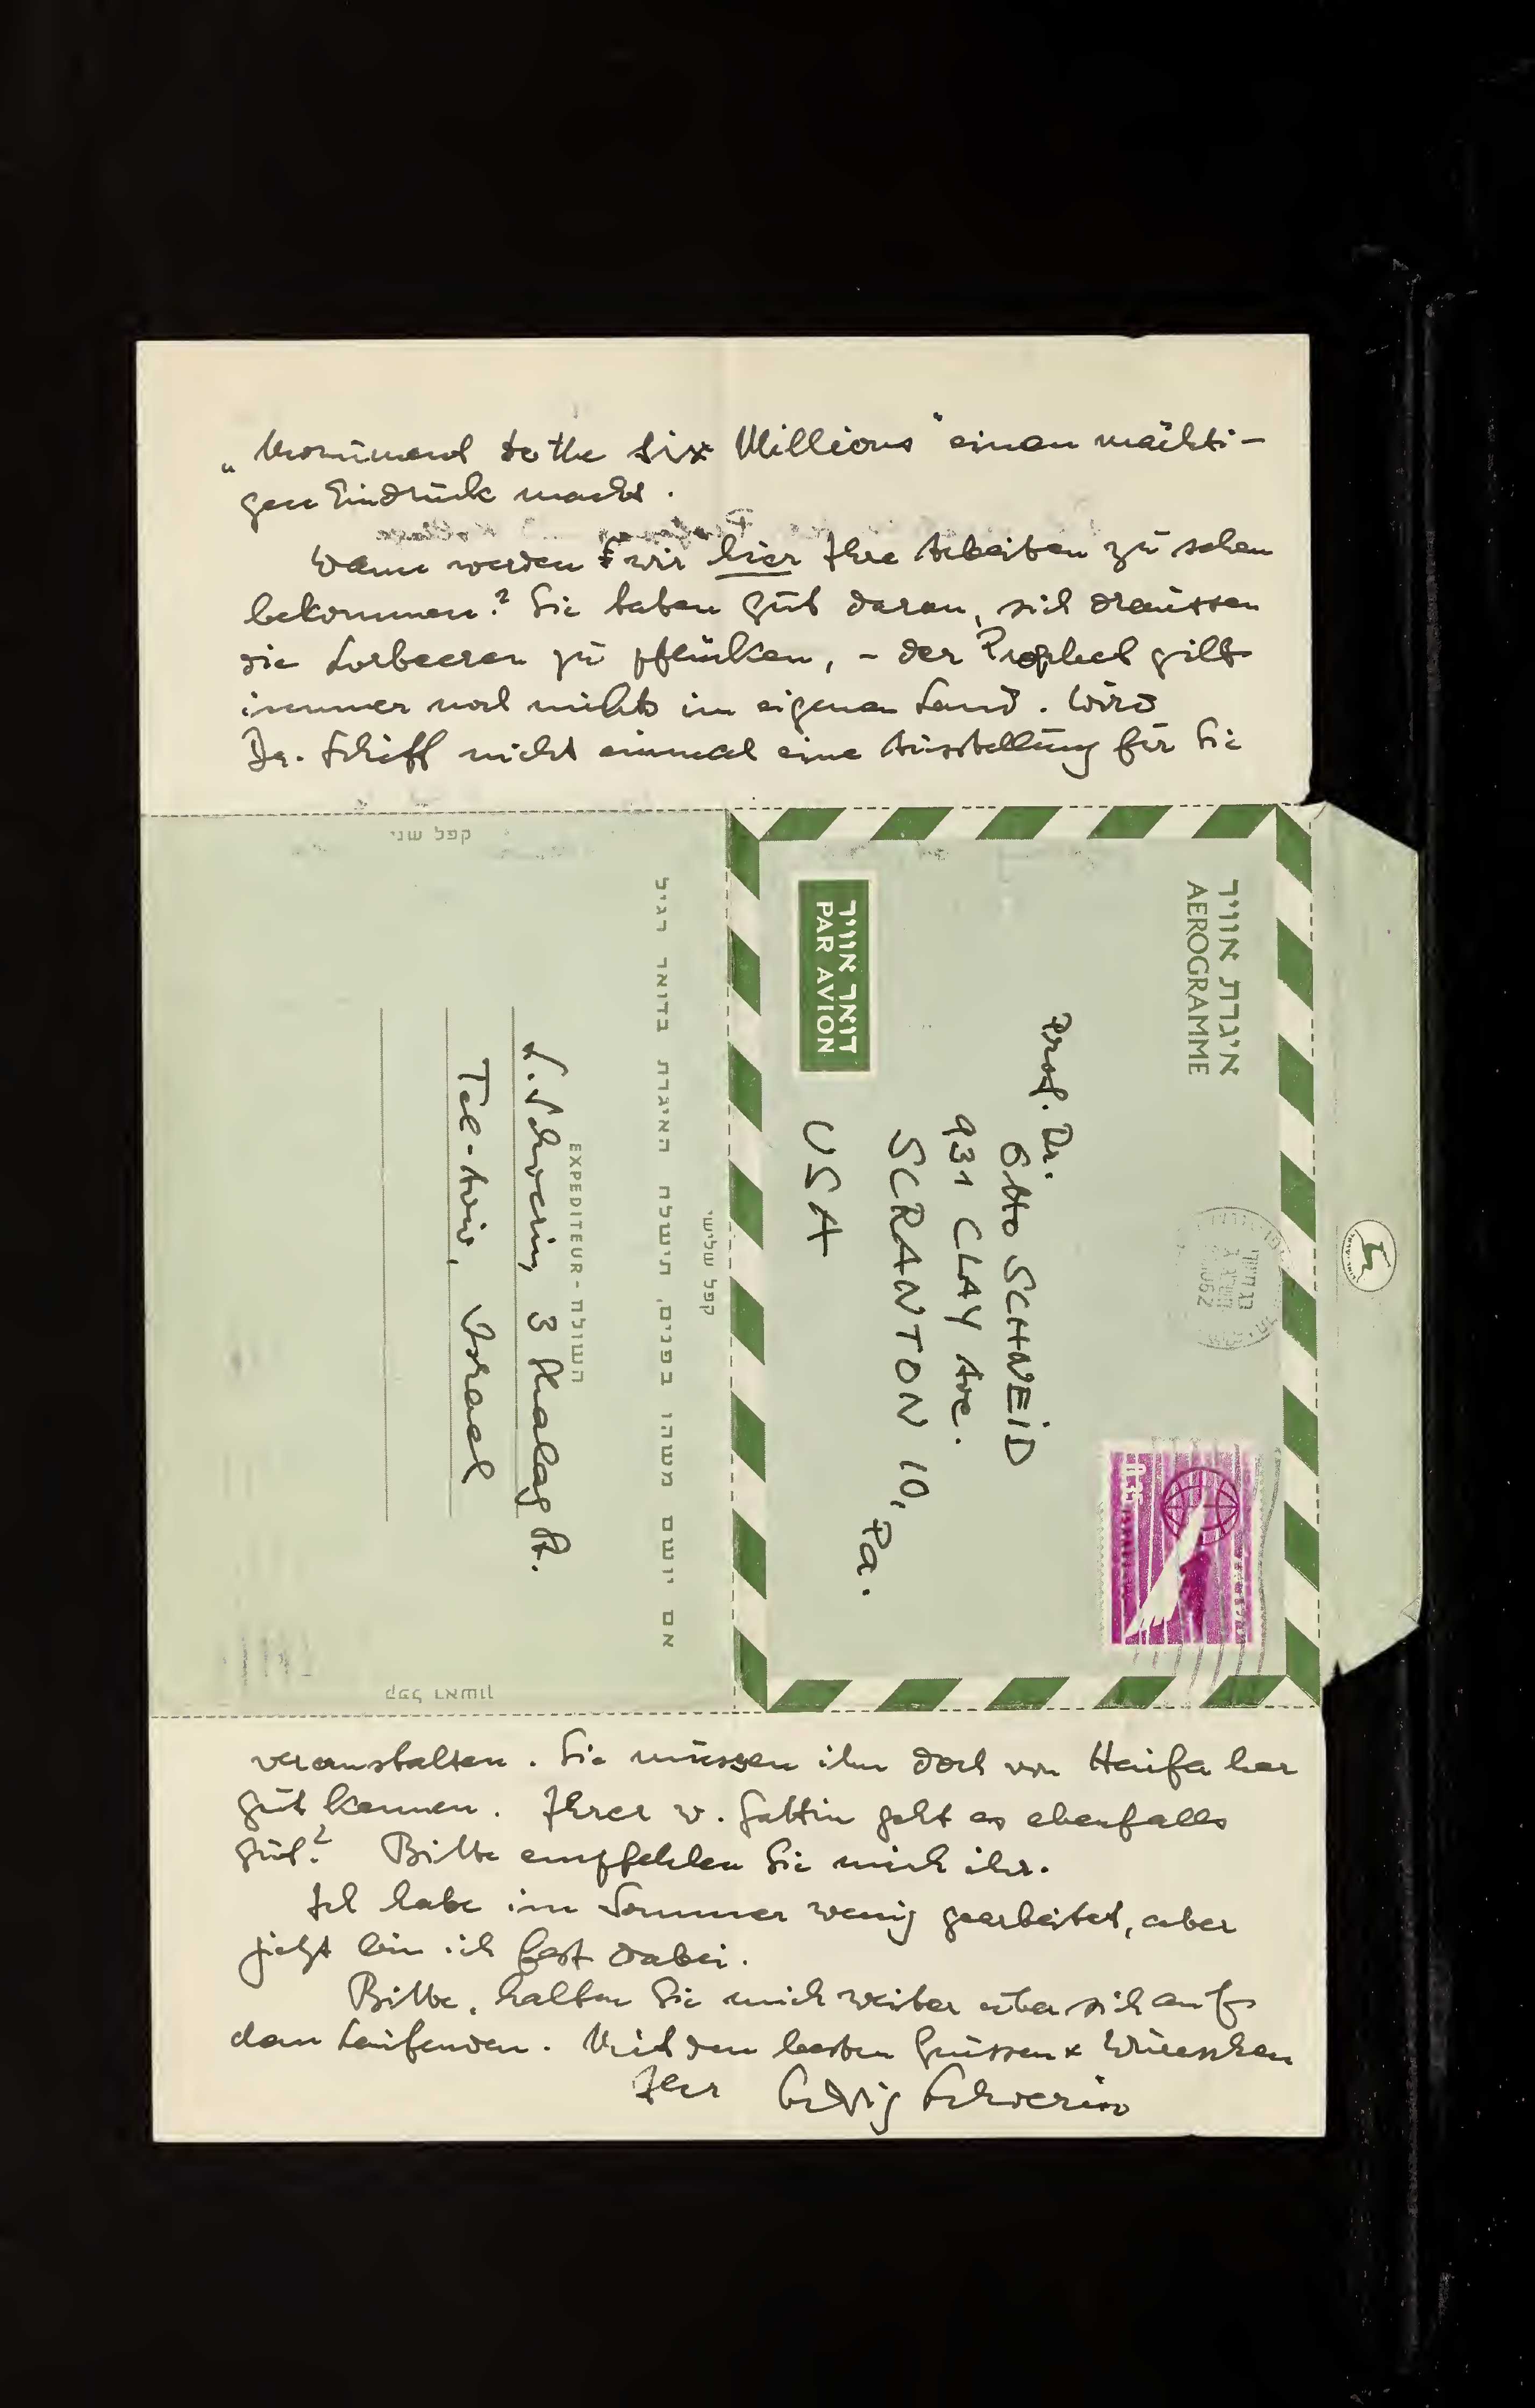 „Monument to the Six Millions" einen mächti-
gen Eindruck macht.
Wann werden wir hier Ihre Arbeiten zu sehen
bekommen? Sie haben gut daran, sich draussen
die Lorbeeren zu pflücken, – der Prophet gilt
immer noch nichts im eigenen Land. Wird
Dr. Schiff nicht einmal eine Ausstellung für Sie
קפל שני
איגרת אוויר
AEROGRAMME
דואר אוויר
PAR AVION
Prof. Dr.
Otto SCHNEID
931 CLAY Ave.
SCRANTON 10,
Pa.
USA
קפל שלישי
אם יושם משהו בפנים, תישלח האיגרת בדואר רגיל
EXPEDITEUR - השולח
L. Schwerin, 3 St.
Tel-Aviv, Israel
קפל ראשון
veranstalten. Sie müssen ihn doch von Haifa her
gut kennen. Ihrer w. Gattin geht es ebenfalls
gut? Bitte empfehlen Sie mich ihr.
Ich habe im Sommer wenig gearbeitet, aber
jetzt bin ich fest dabei.
Bitte, halten Sie mich weiter über sich auf
dem Laufenden. Mit den besten Grüssen & Wünschen
Ihr Schwerin